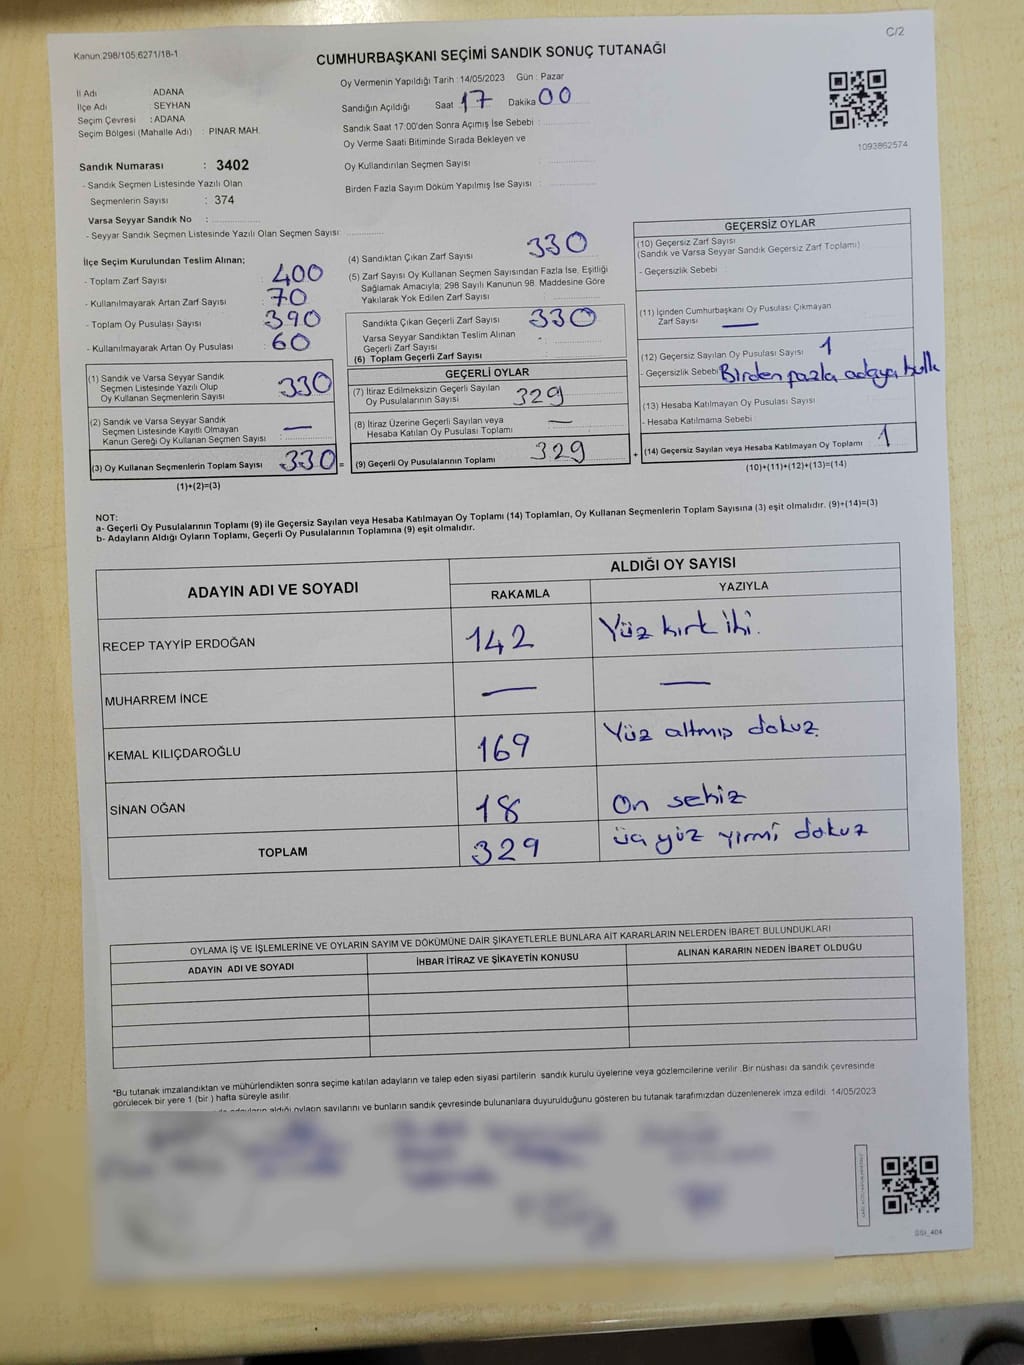 Kanun:298/105;6271/18-1
C/2
CUMHURBAŞKANI SEÇİMİ SANDIK SONUÇ TUTANAĞI
İl Adı ADANA
İlçe Adı : SEYHAN
Seçim Çevresi : ADANA
Seçim Bölgesi (Mahalle Adı) : PINAR MAH.
Sandık Numarası : 3402
- Sandık Seçmen Listesinde Yazılı Olan
Seçmenlerin Sayısı : 374
Varsa Seyyar Sandık No :
- Seyyar Sandık Seçmen Listesinde Yazılı Olan Seçmen Sayısı
Oy Vermenin Yapıldığı Tarih : 14/05/2023 Gün : Pazar
Sandığın Açıldığı Saat 17 Dakika 00
Sandık Saat 17:00'den Sonra Açımış İse Sebebi :
Oy Verme Saati Bitiminde Sırada Bekleyen ve
Oy Kullandırılan Seçmen Sayısı :
Birden Fazla Sayım Döküm Yapılmış İse Sayısı :
1093862574
İlçe Seçim Kurulundan Teslim Alınan;
- Toplam Zarf Sayısı : 400
- Kullanılmayarak Artan Zarf Sayısı : 70
- Toplam Oy Pusulası Sayısı : 390
- Kullanılmayarak Artan Oy Pusulası : 60
(1) Sandık ve Varsa Seyyar Sandık
Seçmen Listesinde Yazılı Olup
Oy Kullanan Seçmenlerin Sayısı : 330
(2) Sandık ve Varsa Seyyar Sandık
Seçmen Listesinde Kayıtlı Olmayan
Kanun Gereği Oy Kullanan Seçmen Sayısı : —
(3) Oy Kullanan Seçmenlerin Toplam Sayısı 330 =
(1)+(2)=(3)
(4) Sandıktan Çıkan Zarf Sayısı : 330
(5) Zarf Sayısı Oy Kullanan Seçmen Sayısından Fazla İse, Eşitliği
Sağlamak Amacıyla; 298 Sayılı Kanunun 98. Maddesine Göre
Yakılarak Yok Edilen Zarf Sayısı :
Sandıkta Çıkan Geçerli Zarf Sayısı : 330
Varsa Seyyar Sandıktan Teslim Alınan
Geçerli Zarf Sayısı :
(6) Toplam Geçerli Zarf Sayısı
GEÇERLİ OYLAR
(7) İtiraz Edilmeksizin Geçerli Sayılan
Oy Pusulalarının Sayısı : 329
(8) İtiraz Üzerine Geçerli Sayılan veya
Hesaba Katılan Oy Pusulası Toplamı : —
(9) Geçerli Oy Pusulalarının Toplamı : 329 +
GEÇERSİZ OYLAR
(10) Geçersiz Zarf Sayısı
(Sandık ve Varsa Seyyar Sandık Geçersiz Zarf Toplamı)
- Geçersizlik Sebebi
(11) İçinden Cumhurbaşkanı Oy Pusulası Çıkmayan
Zarf Sayısı : —
(12) Geçersiz Sayılan Oy Pusulası Sayısı : 1
- Geçersizlik Sebebi Birden fazla adaya
(13) Hesaba Katılmayan Oy Pusulası Sayısı :
- Hesaba Katılmama Sebebi :
(14) Geçersiz Sayılan veya Hesaba Katılmayan Oy Toplamı : 1
(10)+(11)+(12)+(13)=(14)
NOT:
a- Geçerli Oy Pusulalarının Toplamı (9) ile Geçersiz Sayılan veya Hesaba Katılmayan Oy Toplamı (14) Toplamları, Oy Kullanan Seçmenlerin Toplam Sayısına (3) eşit olmalıdır. (9)+(14)=(3)
b- Adayların Aldığı Oyların Toplamı, Geçerli Oy Pusulalarının Toplamına (9) eşit olmalıdır.
ADAYIN ADI VE SOYADI
ALDIĞI OY SAYISI
RAKAMLA YAZIYLA
RECEP TAYYİP ERDOĞAN 142 Yüz kırk iki.
MUHARREM İNCE — —
KEMAL KILIÇDAROĞLU 169 Yüz altmış dokuz.
SİNAN OĞAN 18 On sekiz
TOPLAM 329 üç yüz yirmi dokuz
OYLAMA İŞ VE İŞLEMLERİNE VE OYLARIN SAYIM VE DÖKÜMÜNE DAİR ŞİKAYETLERLE BUNLARA AİT KARARLARIN NELERDEN İBARET BULUNDUKLARI
ADAYIN ADI VE SOYADI İHBAR İTİRAZ VE ŞİKAYETİN KONUSU ALINAN KARARIN NEDEN İBARET OLDUĞU
"Bu tutanak imzalandıktan ve mühürlendikten sonra seçime katılan adayların ve talep eden siyasi partilerin sandık kurulu üyelerine veya gözlemcilerine verilir .Bir nüshası da sandık çevresinde
görülecek bir yere 1 (bir ) hafta süreyle asılır.
aldığı oyların sayılarını ve bunların sandık çevresinde bulunanlara duyurulduğunu gösteren bu tutanak tarafımızdan düzenlenerek imza edildi. 14/05/2023
SSI_404